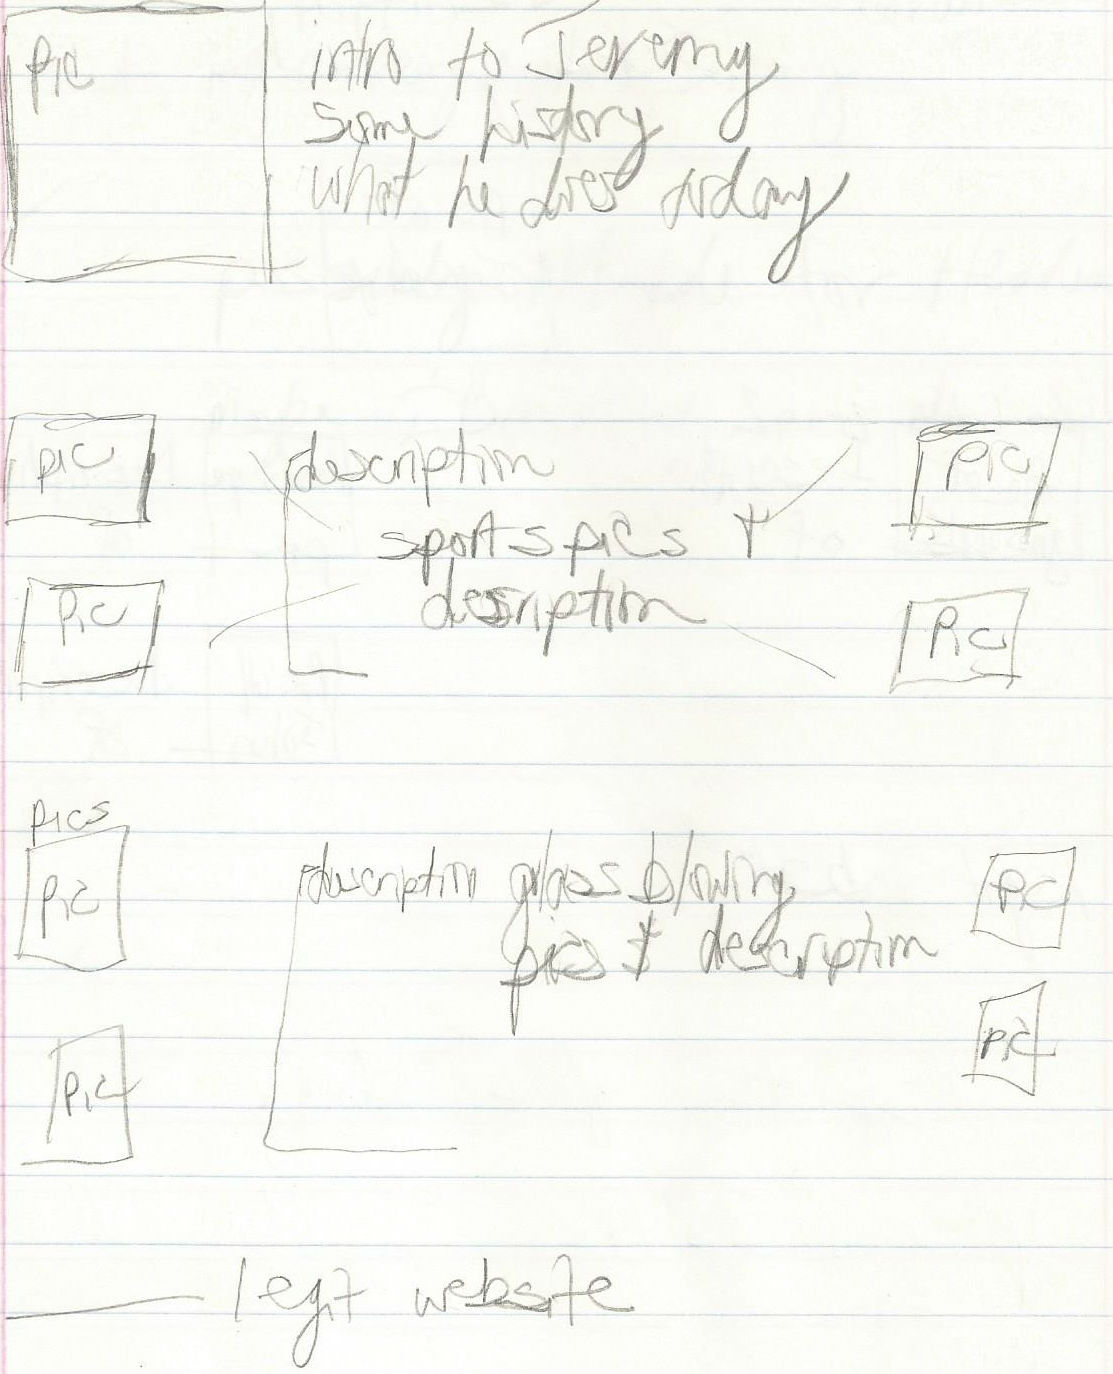 pic
intro to Jeremy
some history
what he does today
pic
description
pic
sports pics &
pic
description
pic
pics
pic
description glass blowing
pic
pics & description
pic
pic
legit website